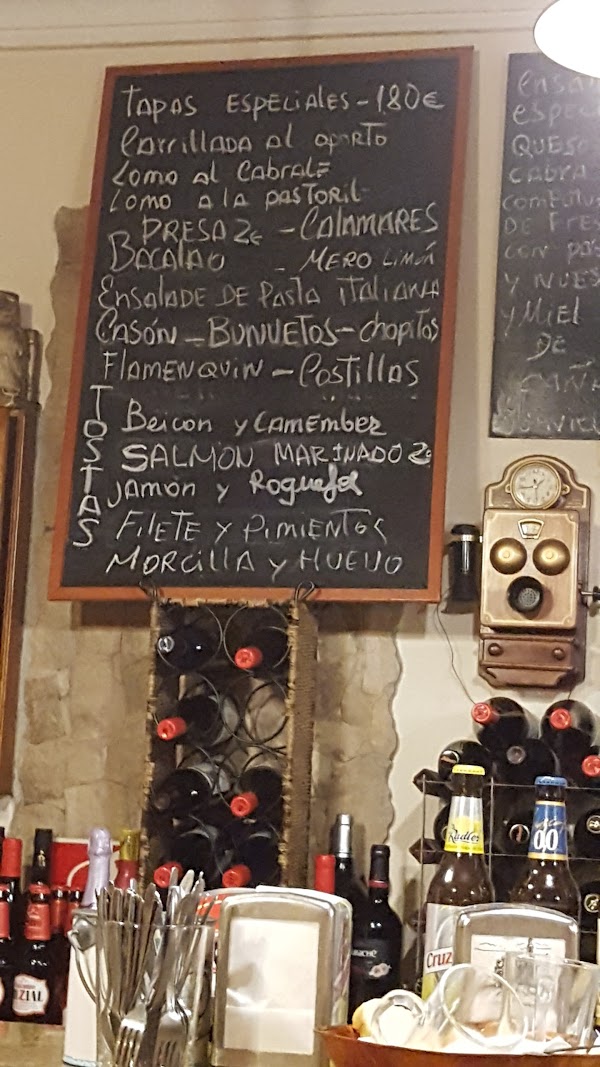 TAPAS ESPECIALES - 1.80€
Carrillada al oporto
Lomo al Cabrale
Lomo a la pastoril
PRESA 2€ - CALAMARES
Bacalao - MERO LIMÓN
Ensalade de Pasta italiana
Casón - Bunuetos - chopitos
Flamenquin - Costillas
TOSTAS
Beicon y Camember
SALMON MARINADO 2€
Jamón y
Filete y pimientos
Morcilla y Huevo
Ensa
espec
QUESO
CABRA
DE
CON PAS
Y NUES
y Miel
DE
CAÑA
Radler
0,0
Cruz